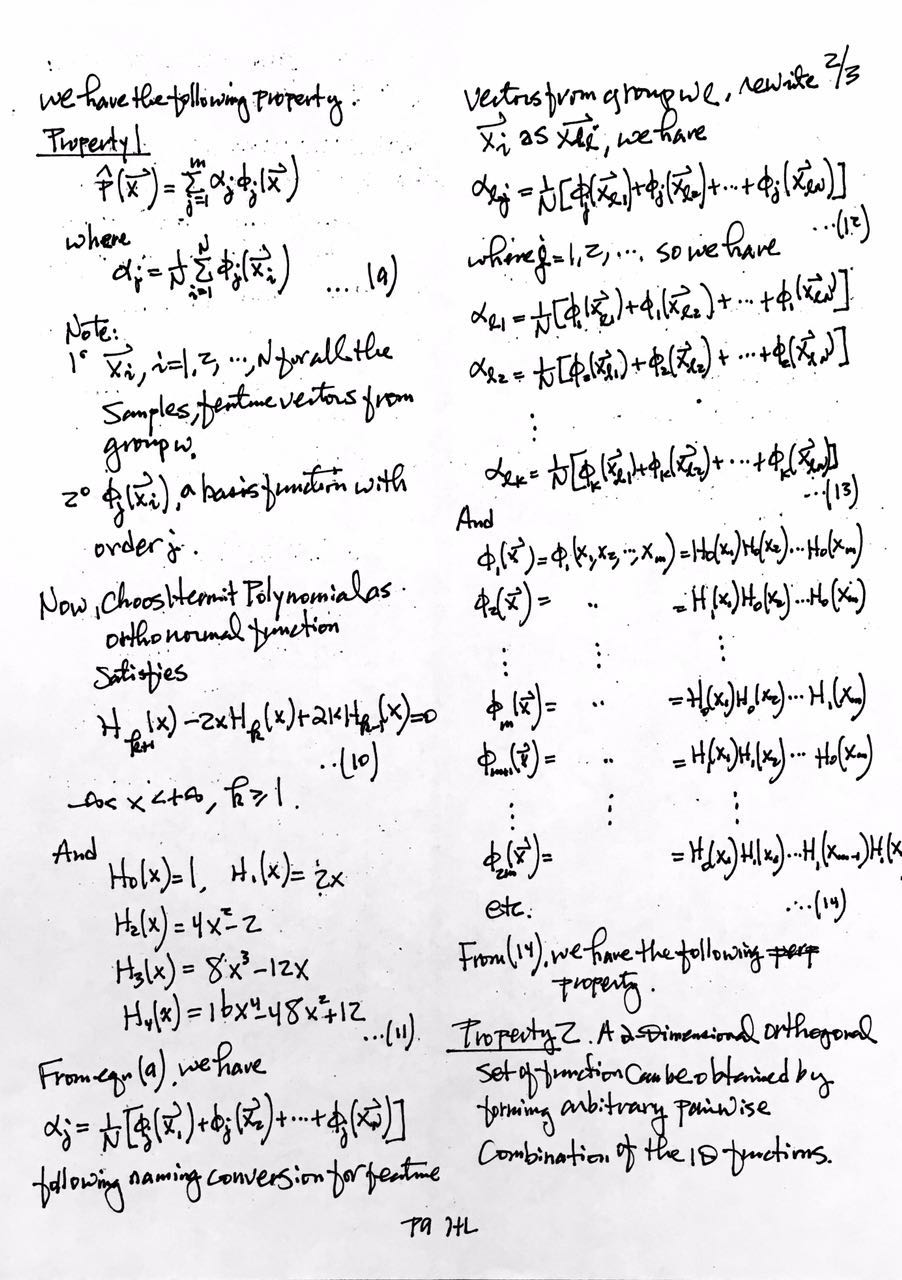 2/3
we have the following property.
Property 1.
P̂(x⃗) = Σ_{j=1}^{m} α_j ϕ_j(x⃗)
where
α_j = 1/N Σ_{i=1}^{N} ϕ_j(x⃗_i) .... (9)
Note:
1° x⃗_i, i=1,2, ..., N for all the
Samples, feature vectors from
group w.
2° ϕ_j(x⃗_i), a basis function with
order j.
Now, Choos Hermit Polynomial as
orthonormal function
Satisfies
H_{k+1}(x) - 2xH_k(x) + 2kH_{k-1}(x) = 0
..(10)
-∞ < x < +∞, k ≥ 1.
And
H_0(x)=1, H_1(x)= 2x
H_2(x) = 4x² - 2
H_3(x) = 8x³ - 12x
H_4(x) = 16x⁴ - 48x² + 12
...(11)
From eqn (9), we have
α_j = 1/N [ϕ_j(x⃗_1) + ϕ_j(x⃗_2) + ... + ϕ_j(x⃗_N)]
following naming conversion for feature
vectors from group w_l, rewrite
x⃗_i as x⃗_{li}, we have
α_{lj} = 1/N [ϕ_j(x⃗_{l1}) + ϕ_j(x⃗_{l2}) + ... + ϕ_j(x⃗_{lN})]
...(12)
where j=1,2, .... so we have
α_{l1} = 1/N [ϕ_1(x⃗_{l1}) + ϕ_1(x⃗_{l2}) + ... + ϕ_1(x⃗_{lN})]
α_{l2} = 1/N [ϕ_2(x⃗_{l1}) + ϕ_2(x⃗_{l2}) + ... + ϕ_2(x⃗_{lN})]
⋮
α_{lk} = 1/N [ϕ_k(x⃗_{l1}) + ϕ_k(x⃗_{l2}) + ... + ϕ_k(x⃗_{lN})]
...(13)
And
ϕ_1(x⃗) = ϕ_1(x_1, x_2, ..., x_m) = H_0(x_1)H_0(x_2)...H_0(x_m)
ϕ_2(x⃗) = .. = H_1(x_1)H_0(x_2)...H_0(x_m)
⋮ ⋮ ⋮
ϕ_m(x⃗) = .. = H_0(x_1)H_0(x_2)...H_1(x_m)
ϕ_{m+1}(x⃗) = .. = H_1(x_1)H_1(x_2)... H_0(x_m)
⋮ ⋮ ⋮
ϕ_{2m}(x⃗) = = H_0(x_1)H_1(x_2)...H_1(x_{m-1})H_1(x
etc. ...(14)
From (14), we have the following
property.
Property 2. A 2-Dimensional orthogonal
set of function Can be obtained by
forming arbitrary pairwise
Combination of the 1D functions.
P9 HL